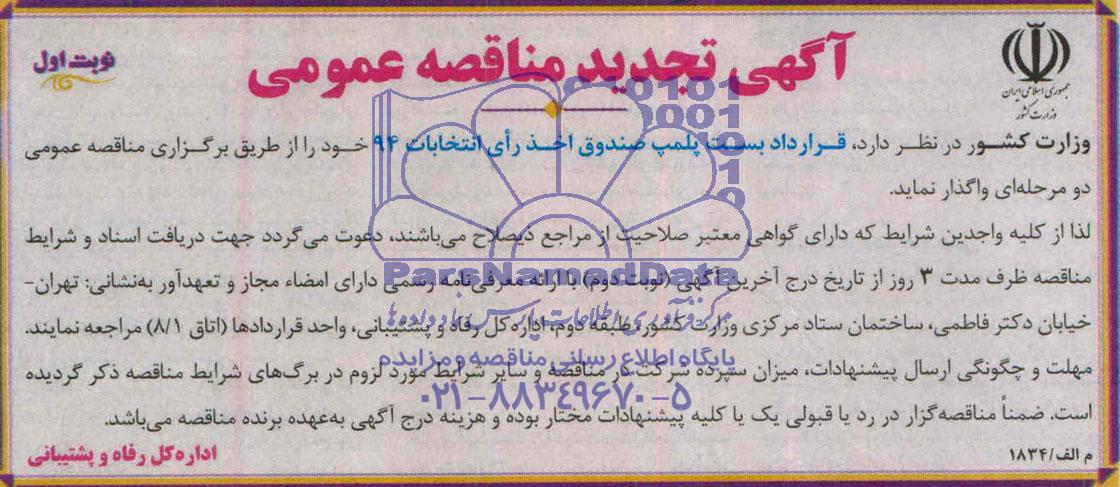 جمهوری اسلامی ایران
وزارت کشور
آگهی تجدید مناقصه عمومی
نوبت اول
وزارت کشور در نظر دارد، قرارداد بست پلمپ صندوق اخذ رأی انتخابات ۹۴ خود را از طریق برگزاری مناقصه عمومی
دو مرحله‌ای واگذار نماید.
لذا از کلیه واجدین شرایط که دارای گواهی معتبر صلاحیت از مراجع ذیصلاح می‌باشند، دعوت می‌گردد جهت دریافت اسناد و شرایط
مناقصه ظرف مدت ۳ روز از تاریخ درج آخرین آگهی (نوبت دوم) با ارائه معرفی‌نامه رسمی دارای امضاء مجاز و تعهدآور به‌نشانی: تهران-
خیابان دکتر فاطمی، ساختمان ستاد مرکزی وزارت کشور، طبقه دوم، اداره کل رفاه و پشتیبانی، واحد قراردادها (اتاق ۸/۱) مراجعه نمایند.
مهلت و چگونگی ارسال پیشنهادات، میزان سپرده شرکت در مناقصه و سایر شرایط مورد لزوم در برگ‌های شرایط مناقصه ذکر گردیده
است. ضمناً مناقصه‌گزار در رد یا قبولی یک یا کلیه پیشنهادات مختار بوده و هزینه درج آگهی به‌عهده برنده مناقصه می‌باشد.
م الف/۱۸۳۴
اداره کل رفاه و پشتیبانی
ParsNamadData
مرکز فرآوری اطلاعات پارس نماد داده‌ها
پایگاه اطلاع رسانی مناقصه و مزایده
۰۲۱-۸۸۳۴۹۶۷۰-۵